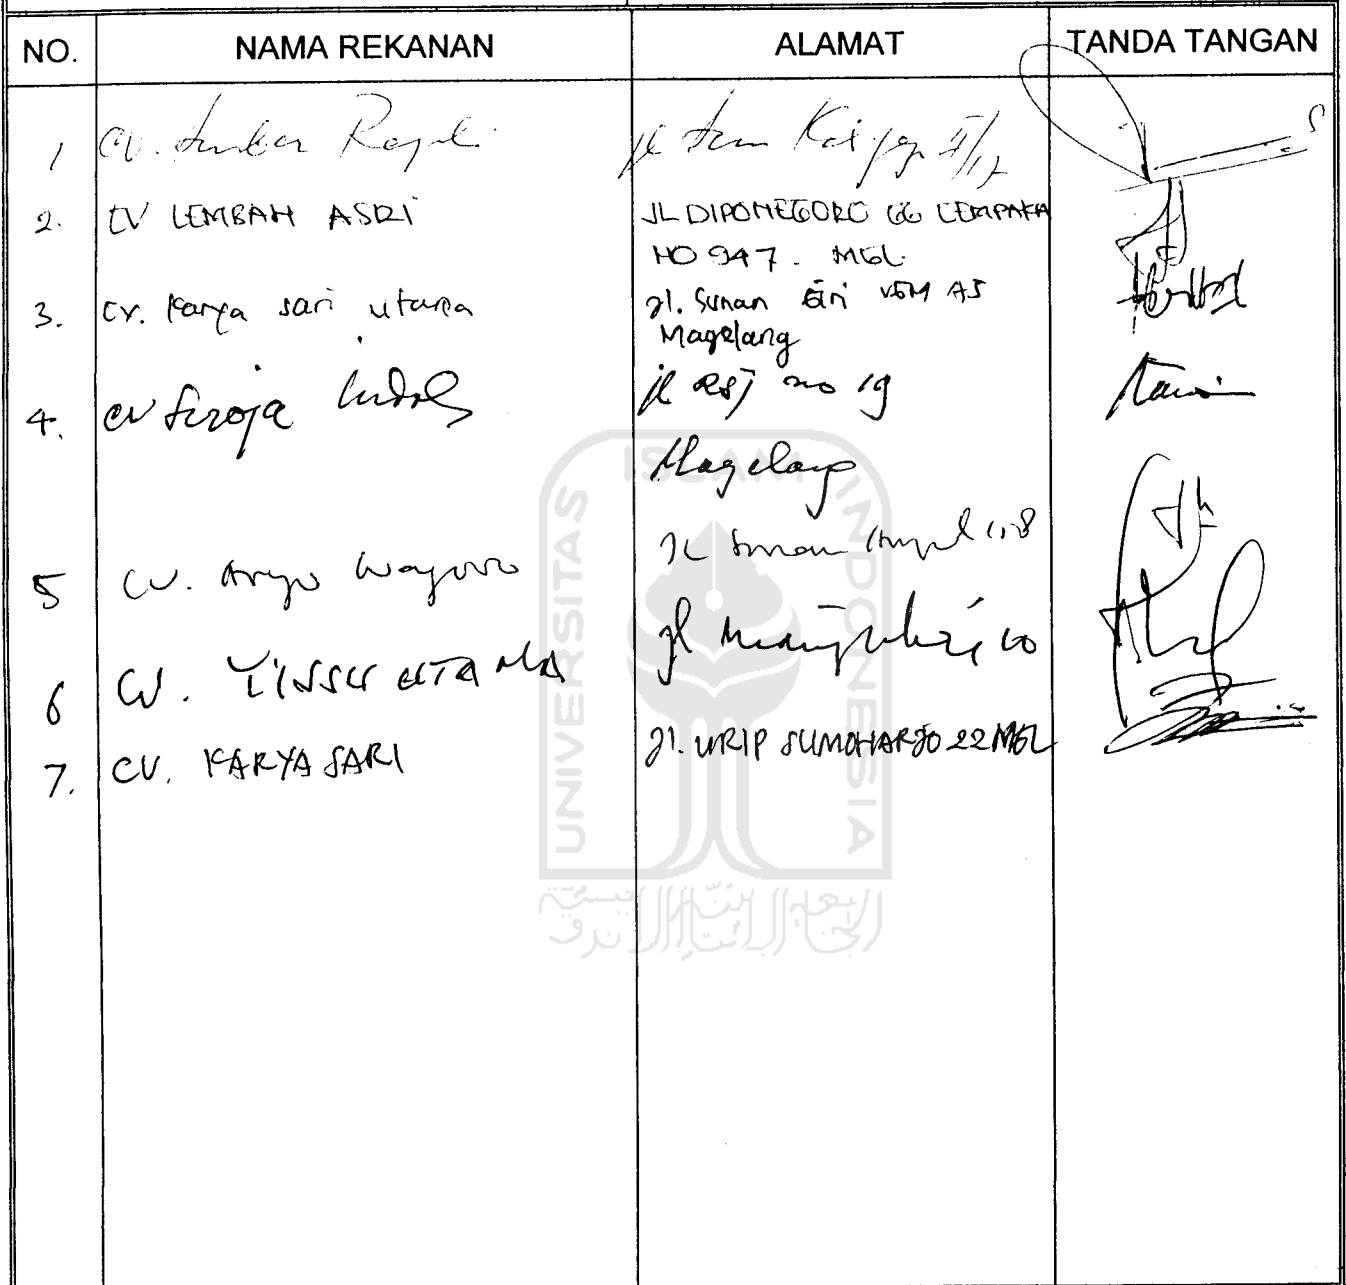 NO. NAMA REKANAN ALAMAT TANDA TANGAN
1 CV. Sumber Rejeki jl Sunan Kalijaga II/17
2. CV LEMBAH ASRI JL DIPONEGORO GG CEMPAKA
NO 947. MGL.
3. CV. Karya sari utama Jl. Sunan Giri A5
Magelang
4. CV Seroja Indah jl RSJ no 19
Magelang
5 CV. Aryo JL Sunan Ampel
6 CV. UTAMA jl
7. CV. KARYA SARI Jl. URIP SUMOHARJO 22 MGL
UNIVERSITAS
ISLAM
INDONESIA